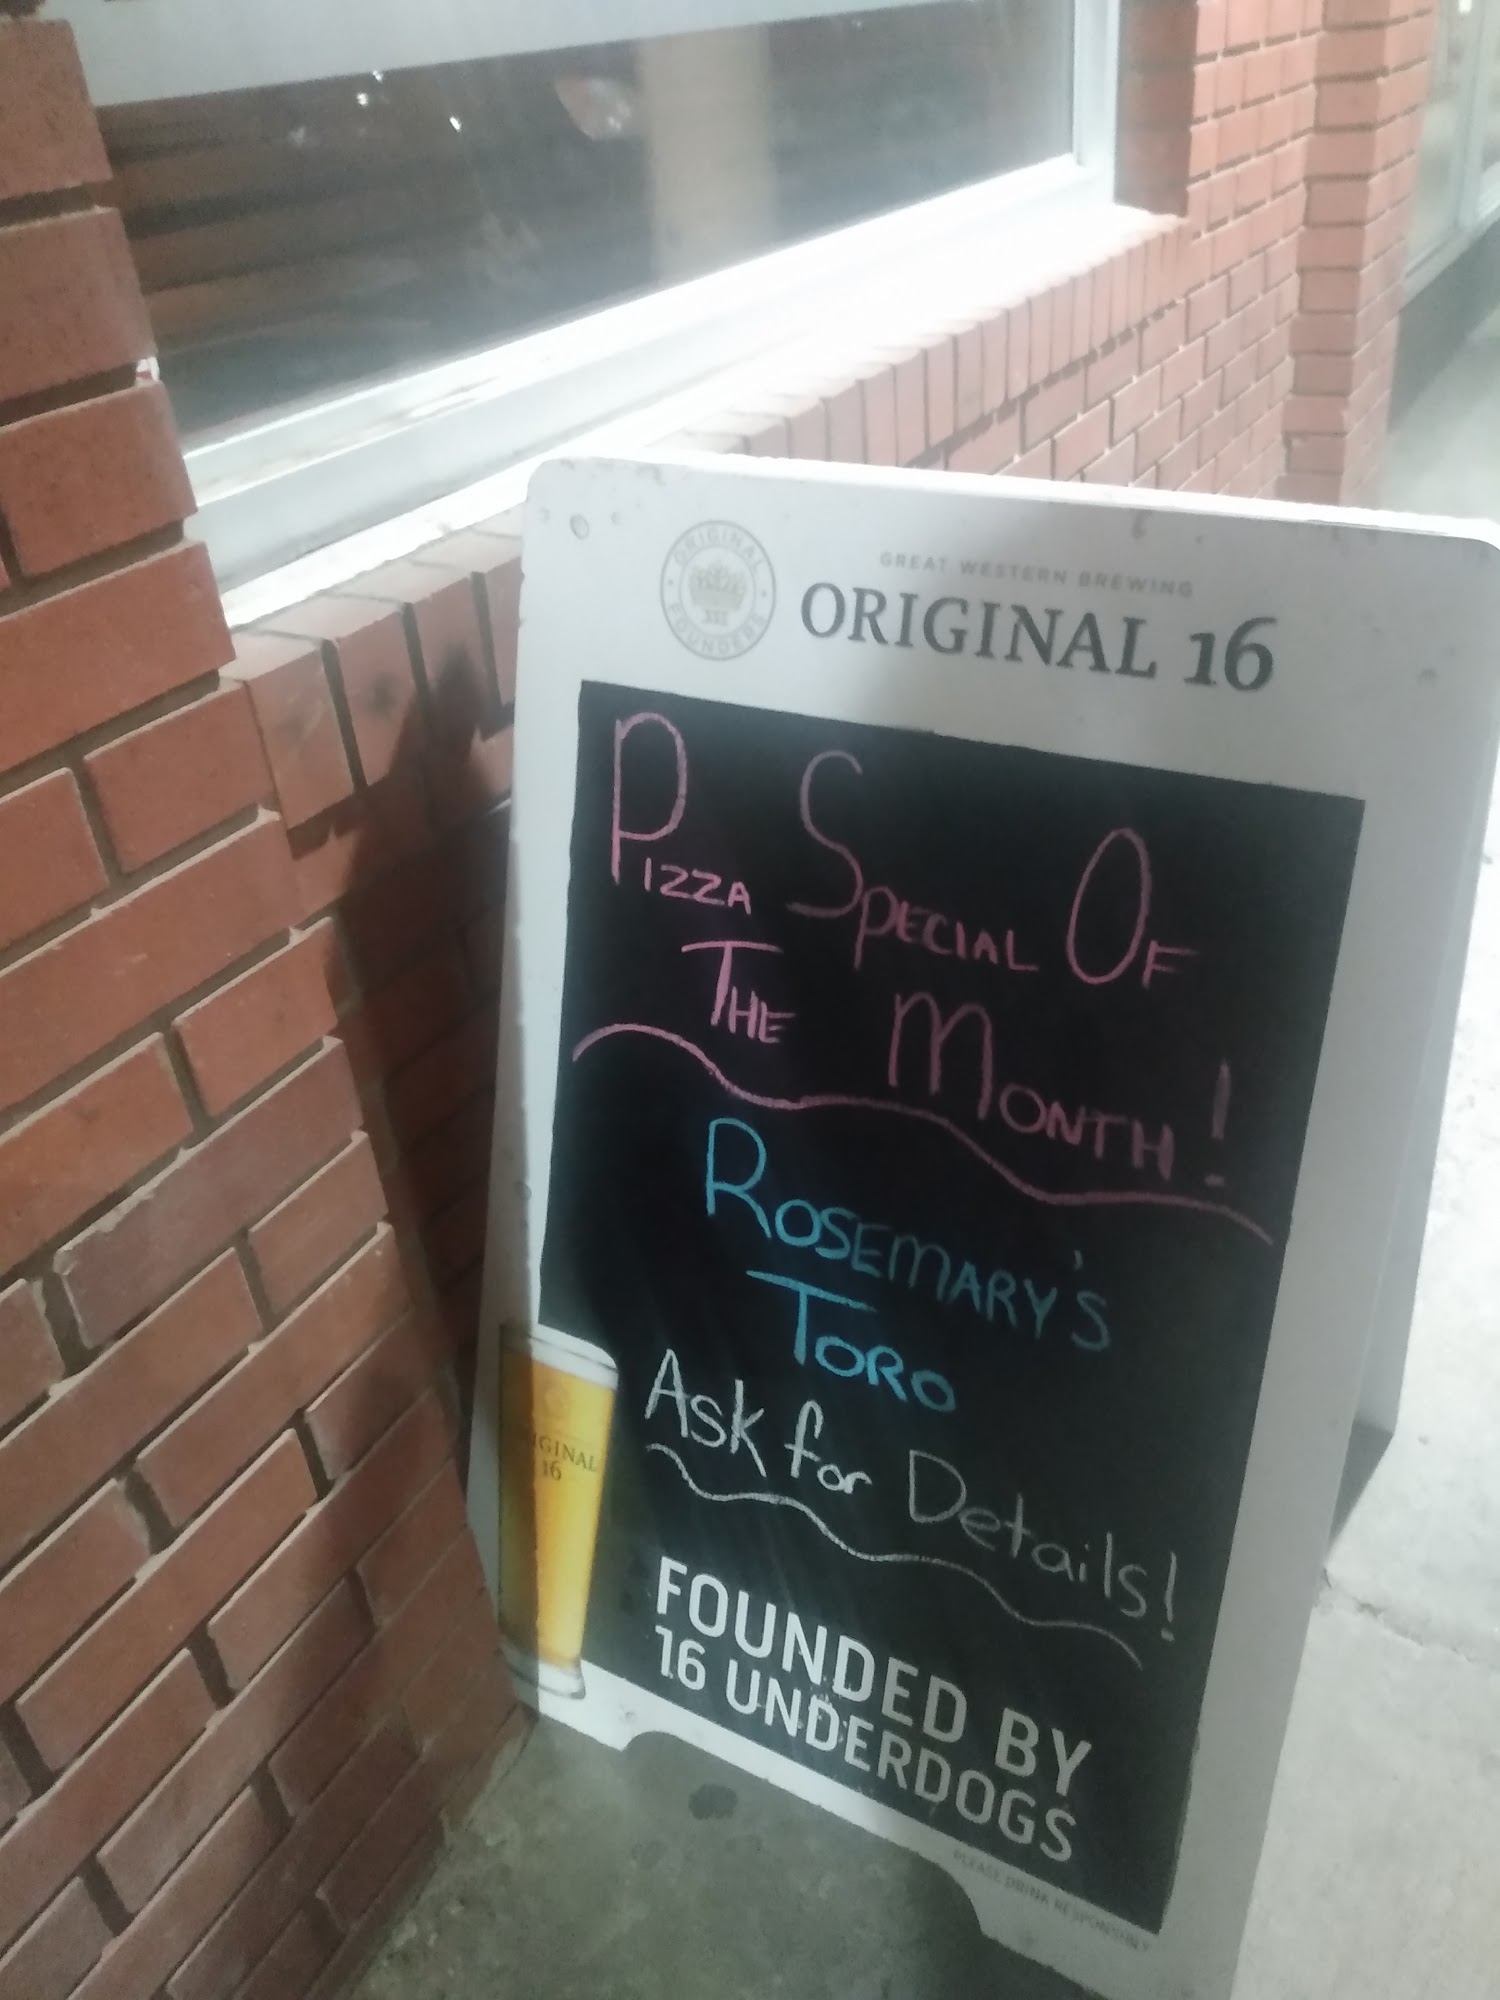 ORIGINAL
XVI
FOUNDERS
GREAT WESTERN BREWING
ORIGINAL 16
Pizza Special Of
The Month!
Rosemary's
Toro
Ask for Details!
ORIGINAL
16
FOUNDED BY
16 UNDERDOGS
PLEASE DRINK RESPONSIBLY